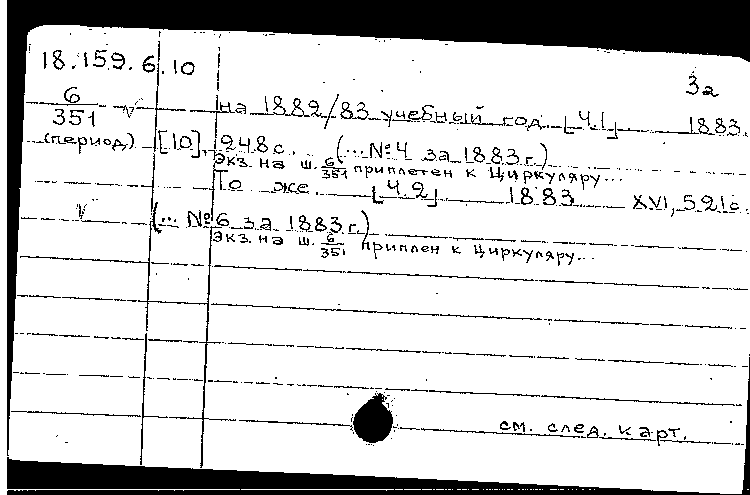 18.159.6.10
3а
6/351 на 1882/83 учебный год [Ч.1] 1883.
(период) [10], 248с. (...№4 за 1883г.)
Экз. на ш. 6/351 приплетен к Циркуляру...
То же [Ч.2] 1883 XVI, 521с.
(... №6 за 1883г.)
Экз. на ш. 6/351 приплен к Циркуляру...
см. след. карт.